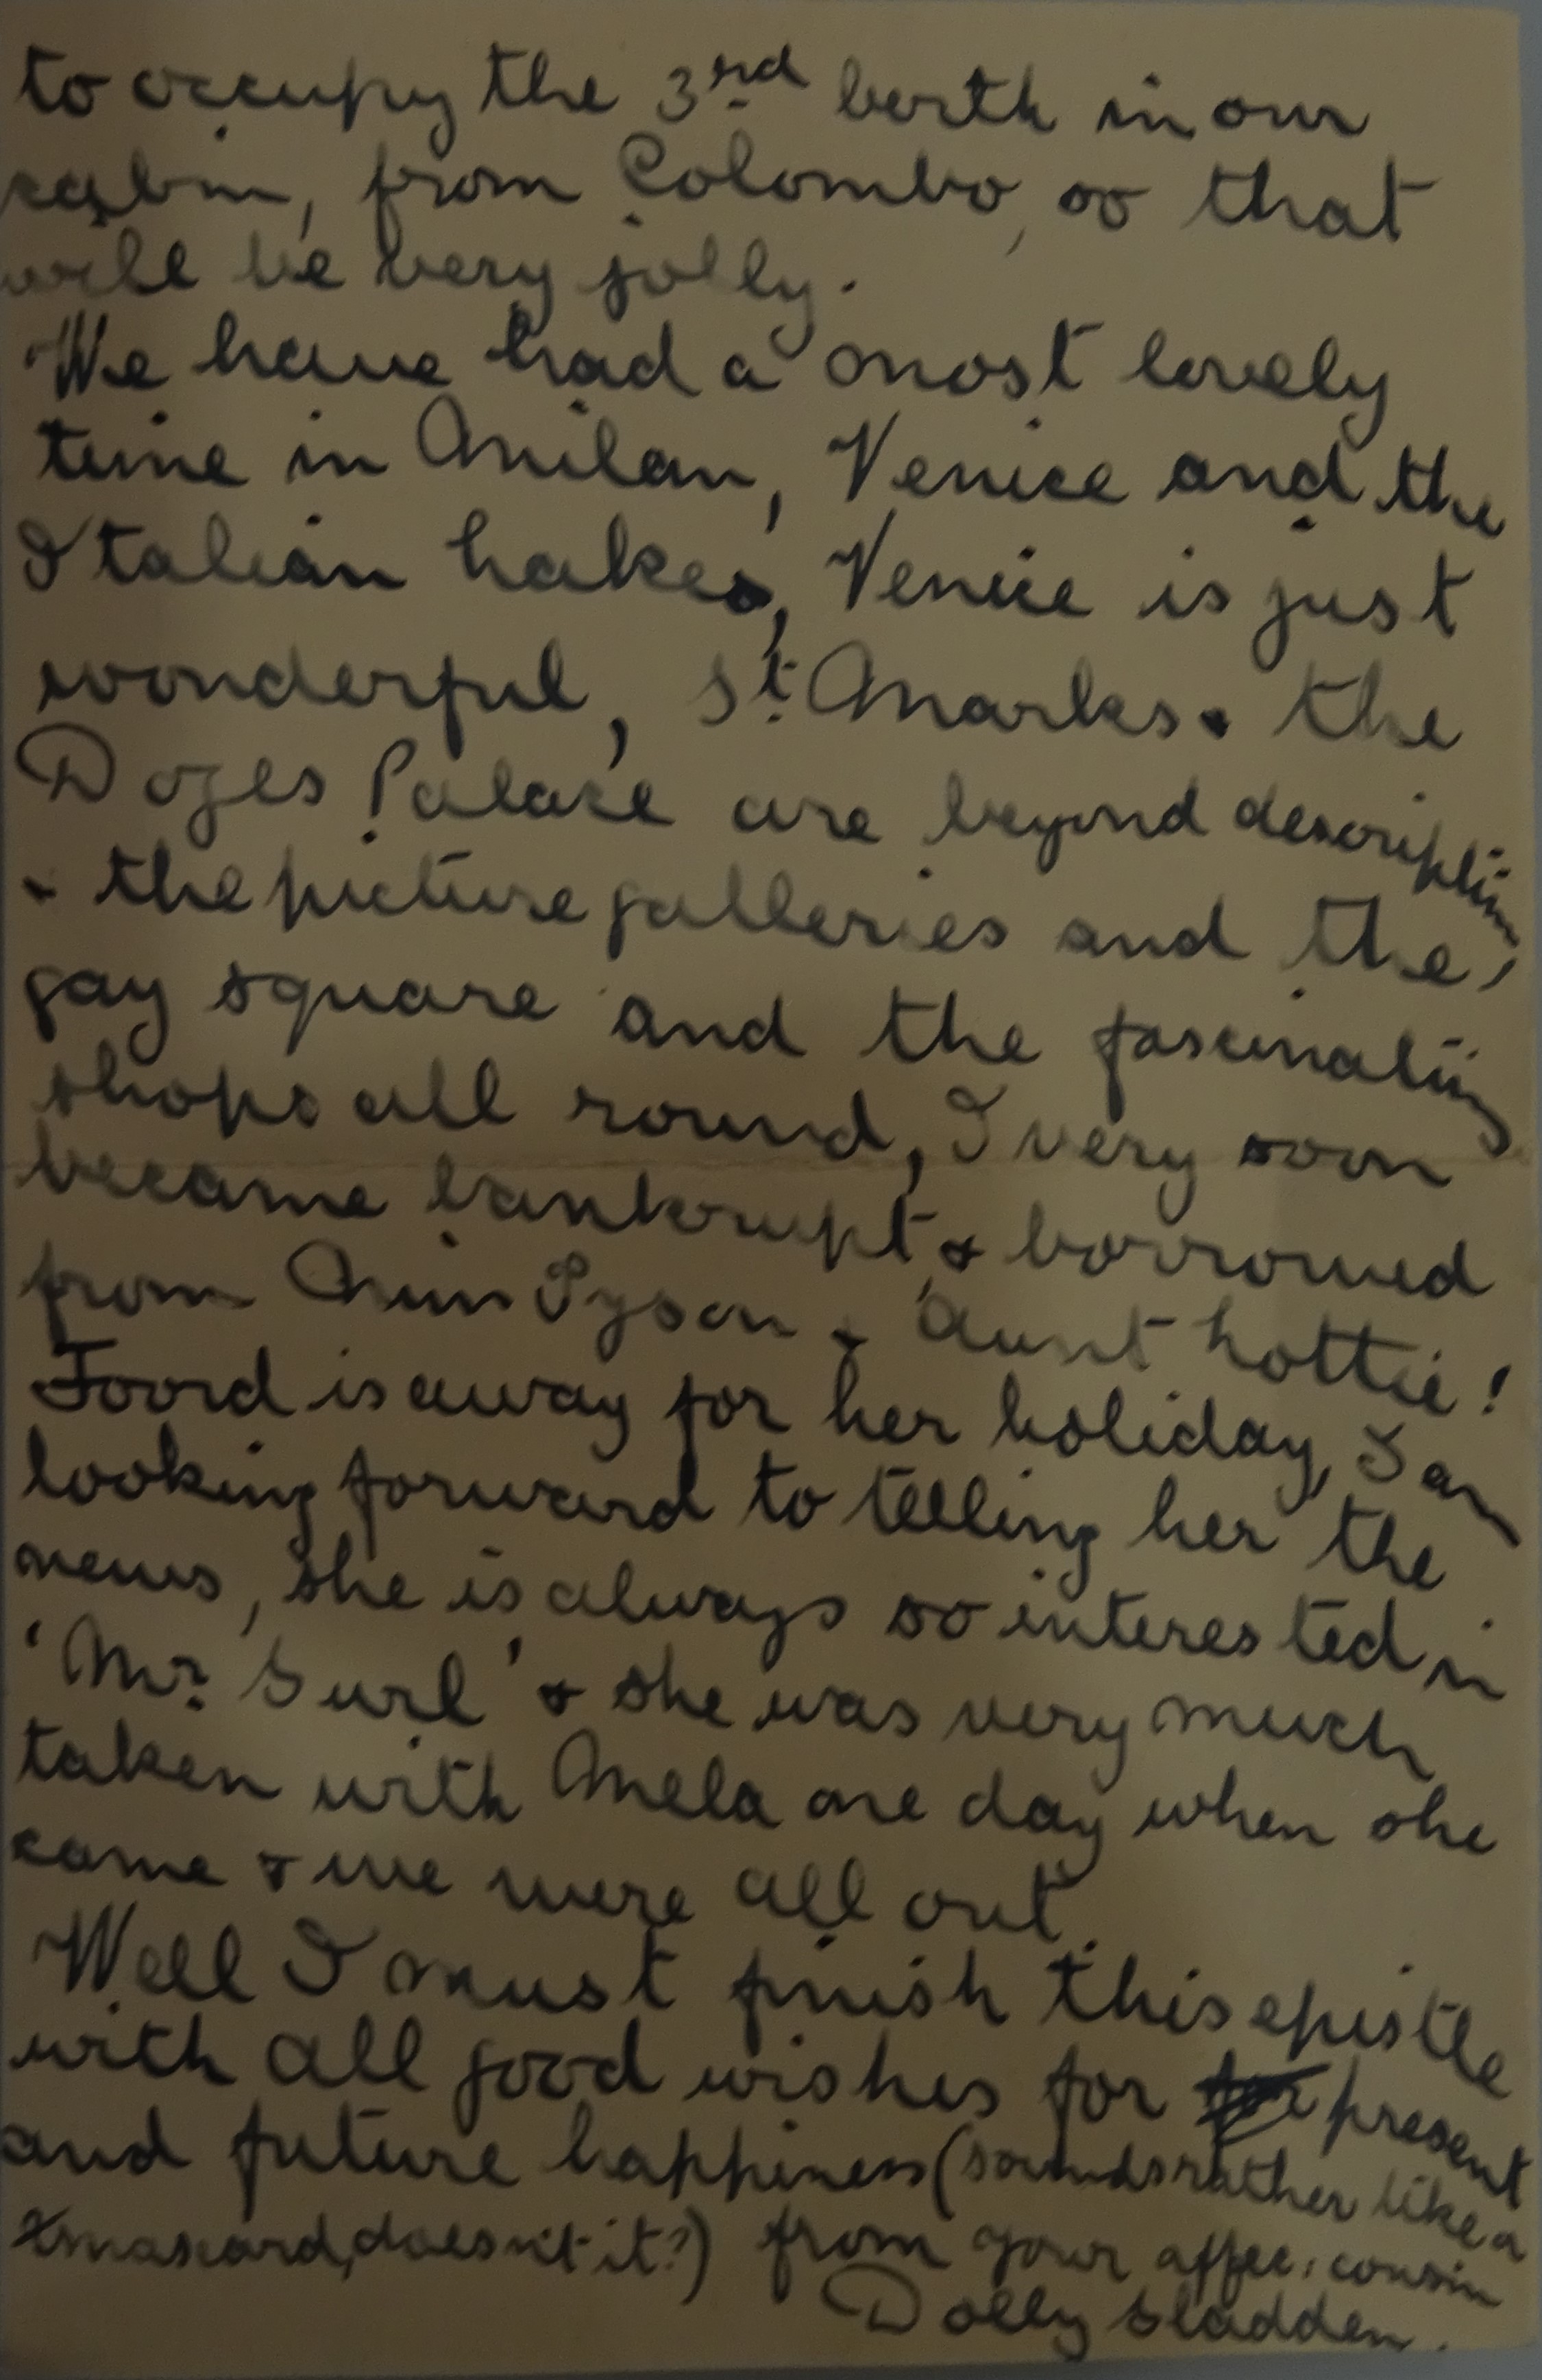 to occupy the 3rd berth in our
cabin, from Colombo, so that
will be very jolly.
We have had a most lovely
time in Milan, Venice and the
Italian Lakes, Venice is just
wonderful, St. Marks & the
Doges Palace are beyond description,
& the picture galleries and the
gay square and the fascinating
shops all round, I very soon
became bankrupt & borrowed
from Min Tyson & Aunt Lottie!
Foord is away for her holiday, I am
looking forward to telling her the
news, she is always so interested in
'Mr. Surl' & she was very much
taken with Mela one day when she
came & we were all out.
Well I must finish this epistle
with all good wishes for present
and future happiness (sounds rather like a
Xmas card, doesn't it?) from your affec: cousin
Dolly Sladden.